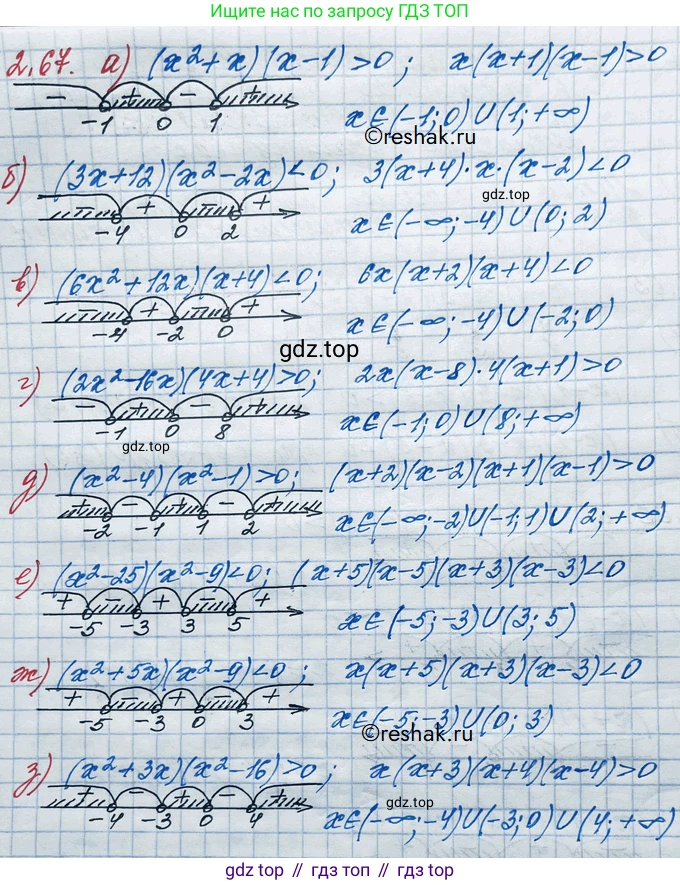 Ищите нас по запросу ГДЗ ТОП
2.67. а) (x²+x)(x-1)>0; x(x+1)(x-1)>0
- + - +
-1 0 1 x∈(-1;0)∪(1;+∞)
©reshak.ru
б) (3x+12)(x²-2x)<0; 3(x+4)·x·(x-2)<0
gdz.top
- + - +
-4 0 2 x∈(-∞;-4)∪(0;2)
в) (6x²+12x)(x+4)<0; 6x(x+2)(x+4)<0
- + - +
-4 -2 0 x∈(-∞;-4)∪(-2;0)
gdz.top
г) (2x²-16x)(4x+4)>0; 2x(x-8)·4(x+1)>0
- + - +
-1 0 8 x∈(-1;0)∪(8;+∞)
gdz.top
д) (x²-4)(x²-1)>0; (x+2)(x-2)(x+1)(x-1)>0
+ - + - +
-2 -1 1 2 x∈(-∞;-2)∪(-1;1)∪(2;+∞)
е) (x²-25)(x²-9)<0; (x+5)(x-5)(x+3)(x-3)<0
+ - + - +
-5 -3 3 5 x∈(-5;-3)∪(3;5)
ж) (x²+5x)(x²-9)<0; x(x+5)(x+3)(x-3)<0
+ - + - +
-5 -3 0 3 x∈(-5;-3)∪(0;3)
©reshak.ru
з) (x²+3x)(x²-16)>0; x(x+3)(x+4)(x-4)>0
+ - + - +
-4 -3 0 4 x∈(-∞;-4)∪(-3;0)∪(4;+∞)
gdz.top
gdz top // гдз топ // gdz.top